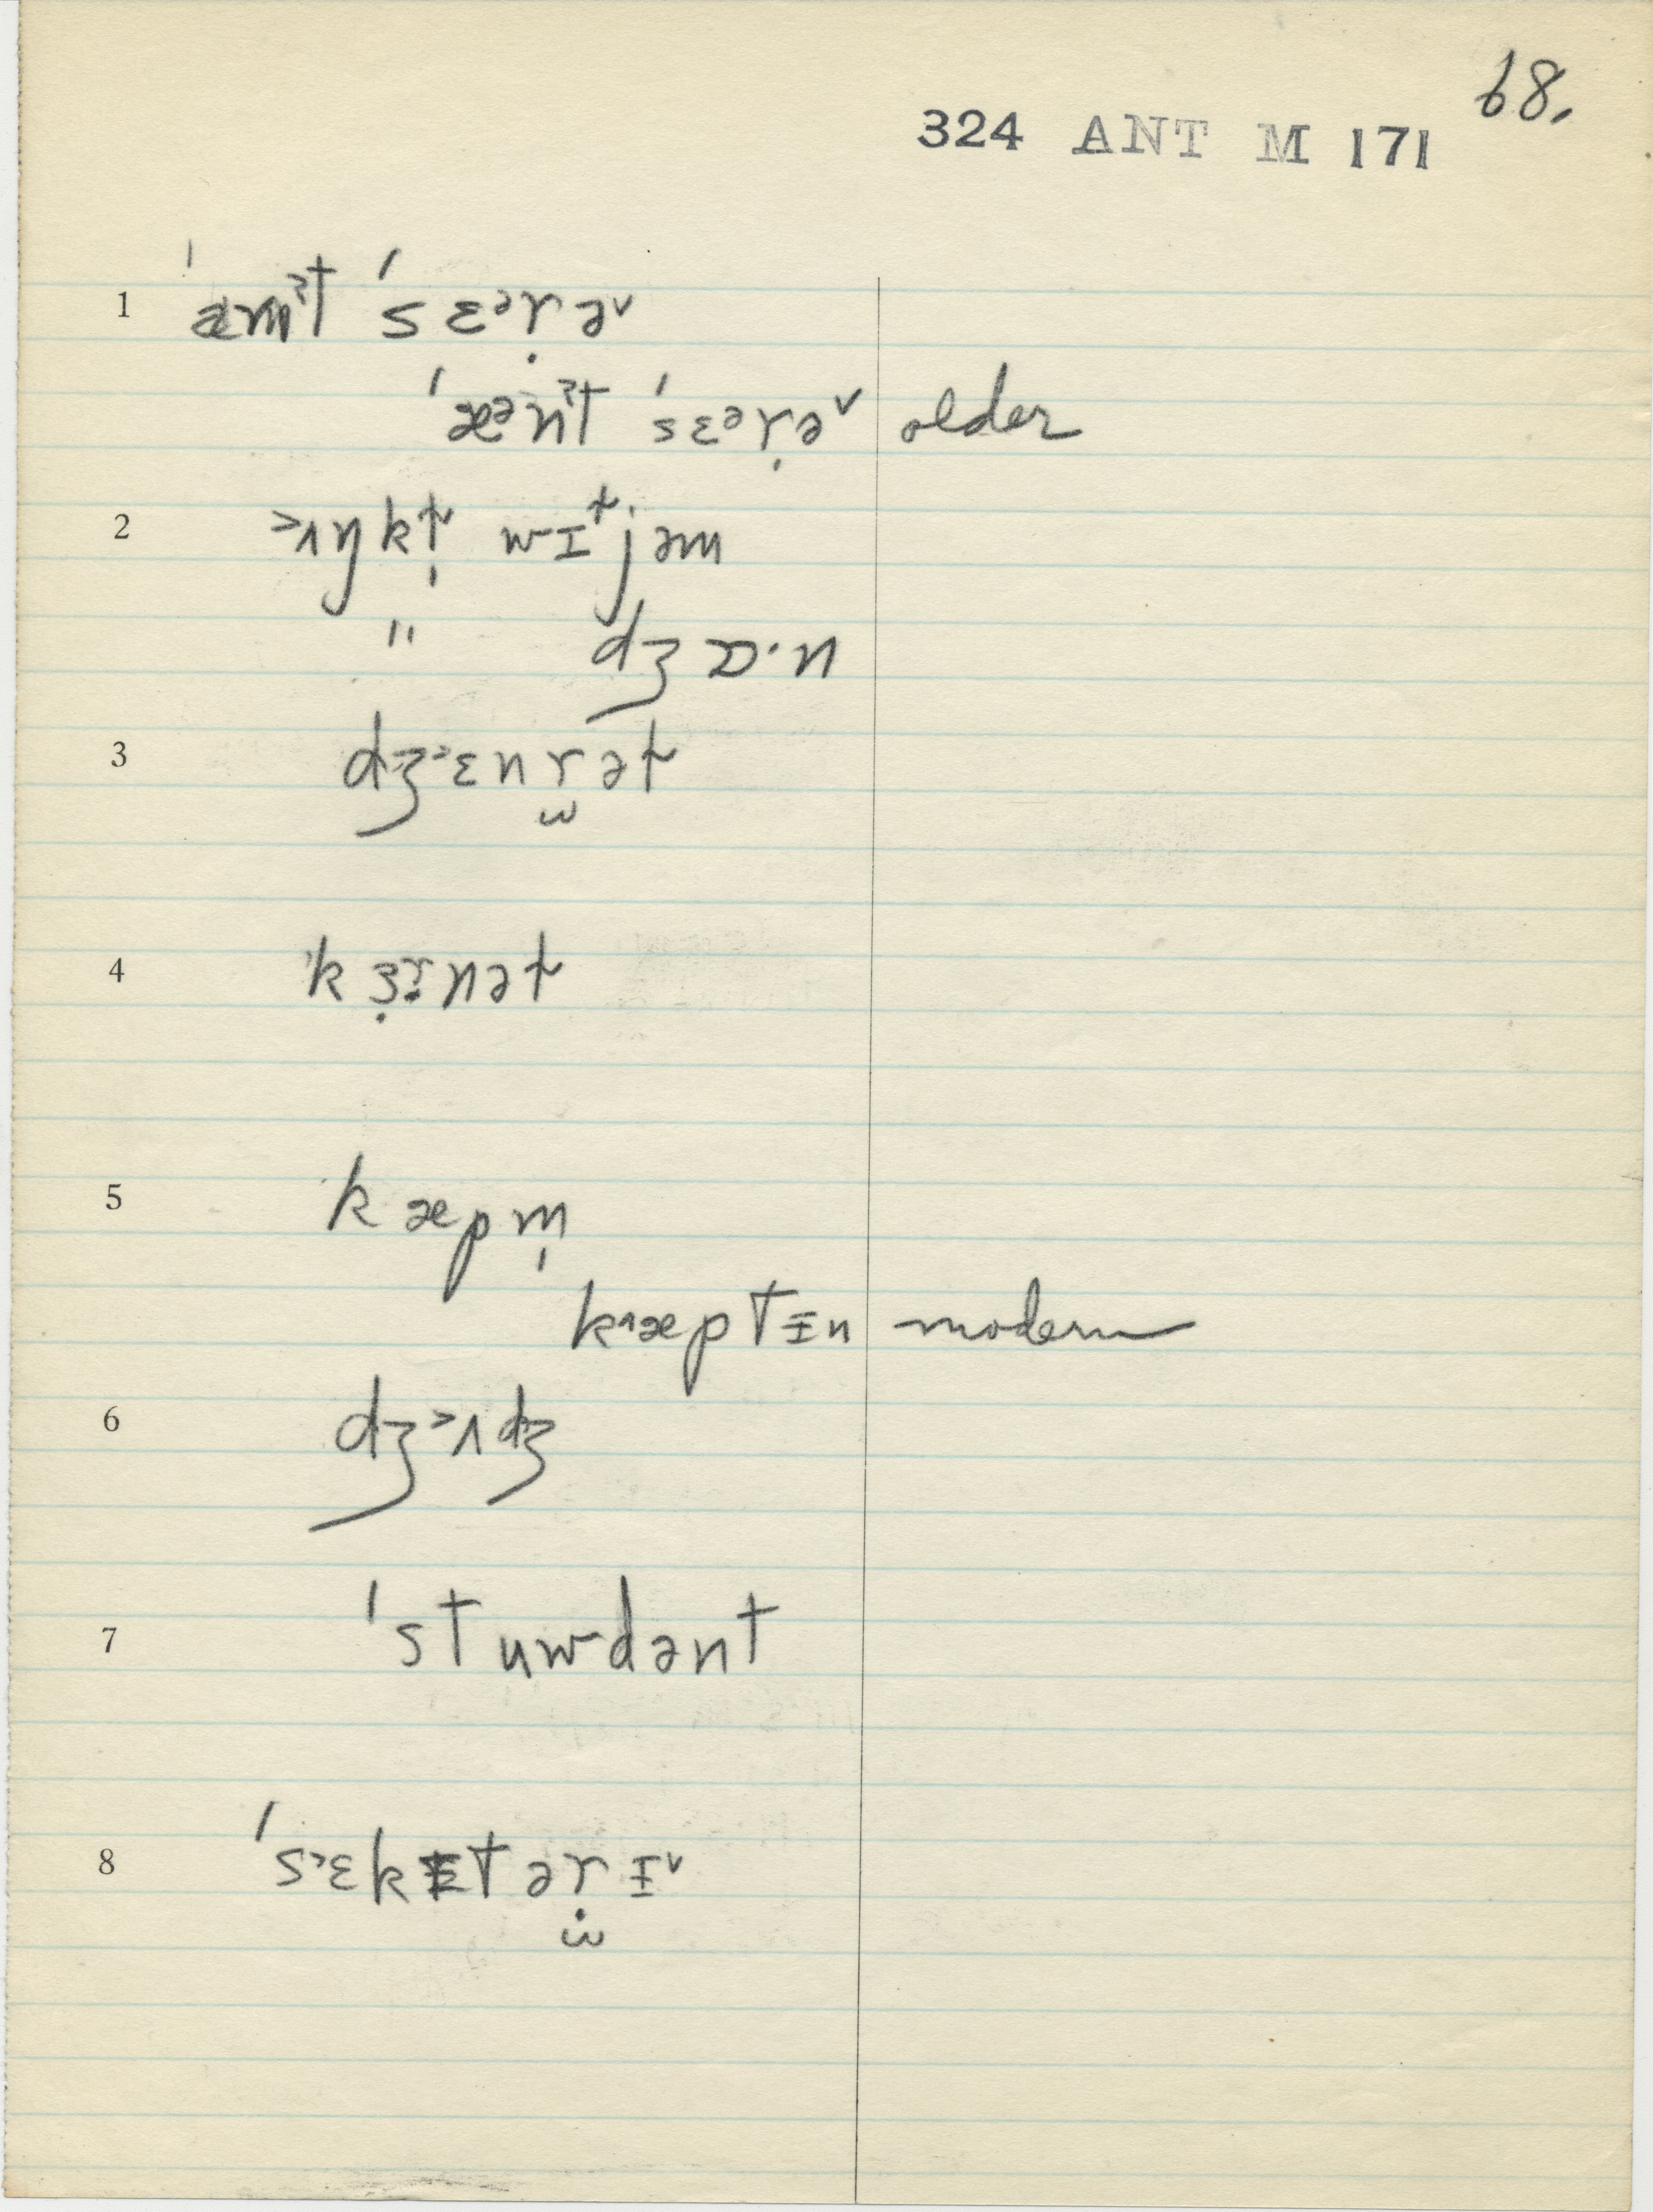 68.
324 ANT M 171
1 ˈæmˀt ˈsɛᵊṛə˅
ˈæᵊnˀt ˈsɛᵊṛə˅ older
2 ˃ʌŋkɫ̩ wɪɫjəm
" dʒɒ·n
3 dʒ˃ɛnr̫əɫ
4 ˈkɜ̣rnəɫ
5 kæpm̩
k˄æptɪn modern
6 dʒ˃ʌdʒ
7 ˈstuwdənt
8 ˈs˃ɛkɪtəṛ̫ɪ˅